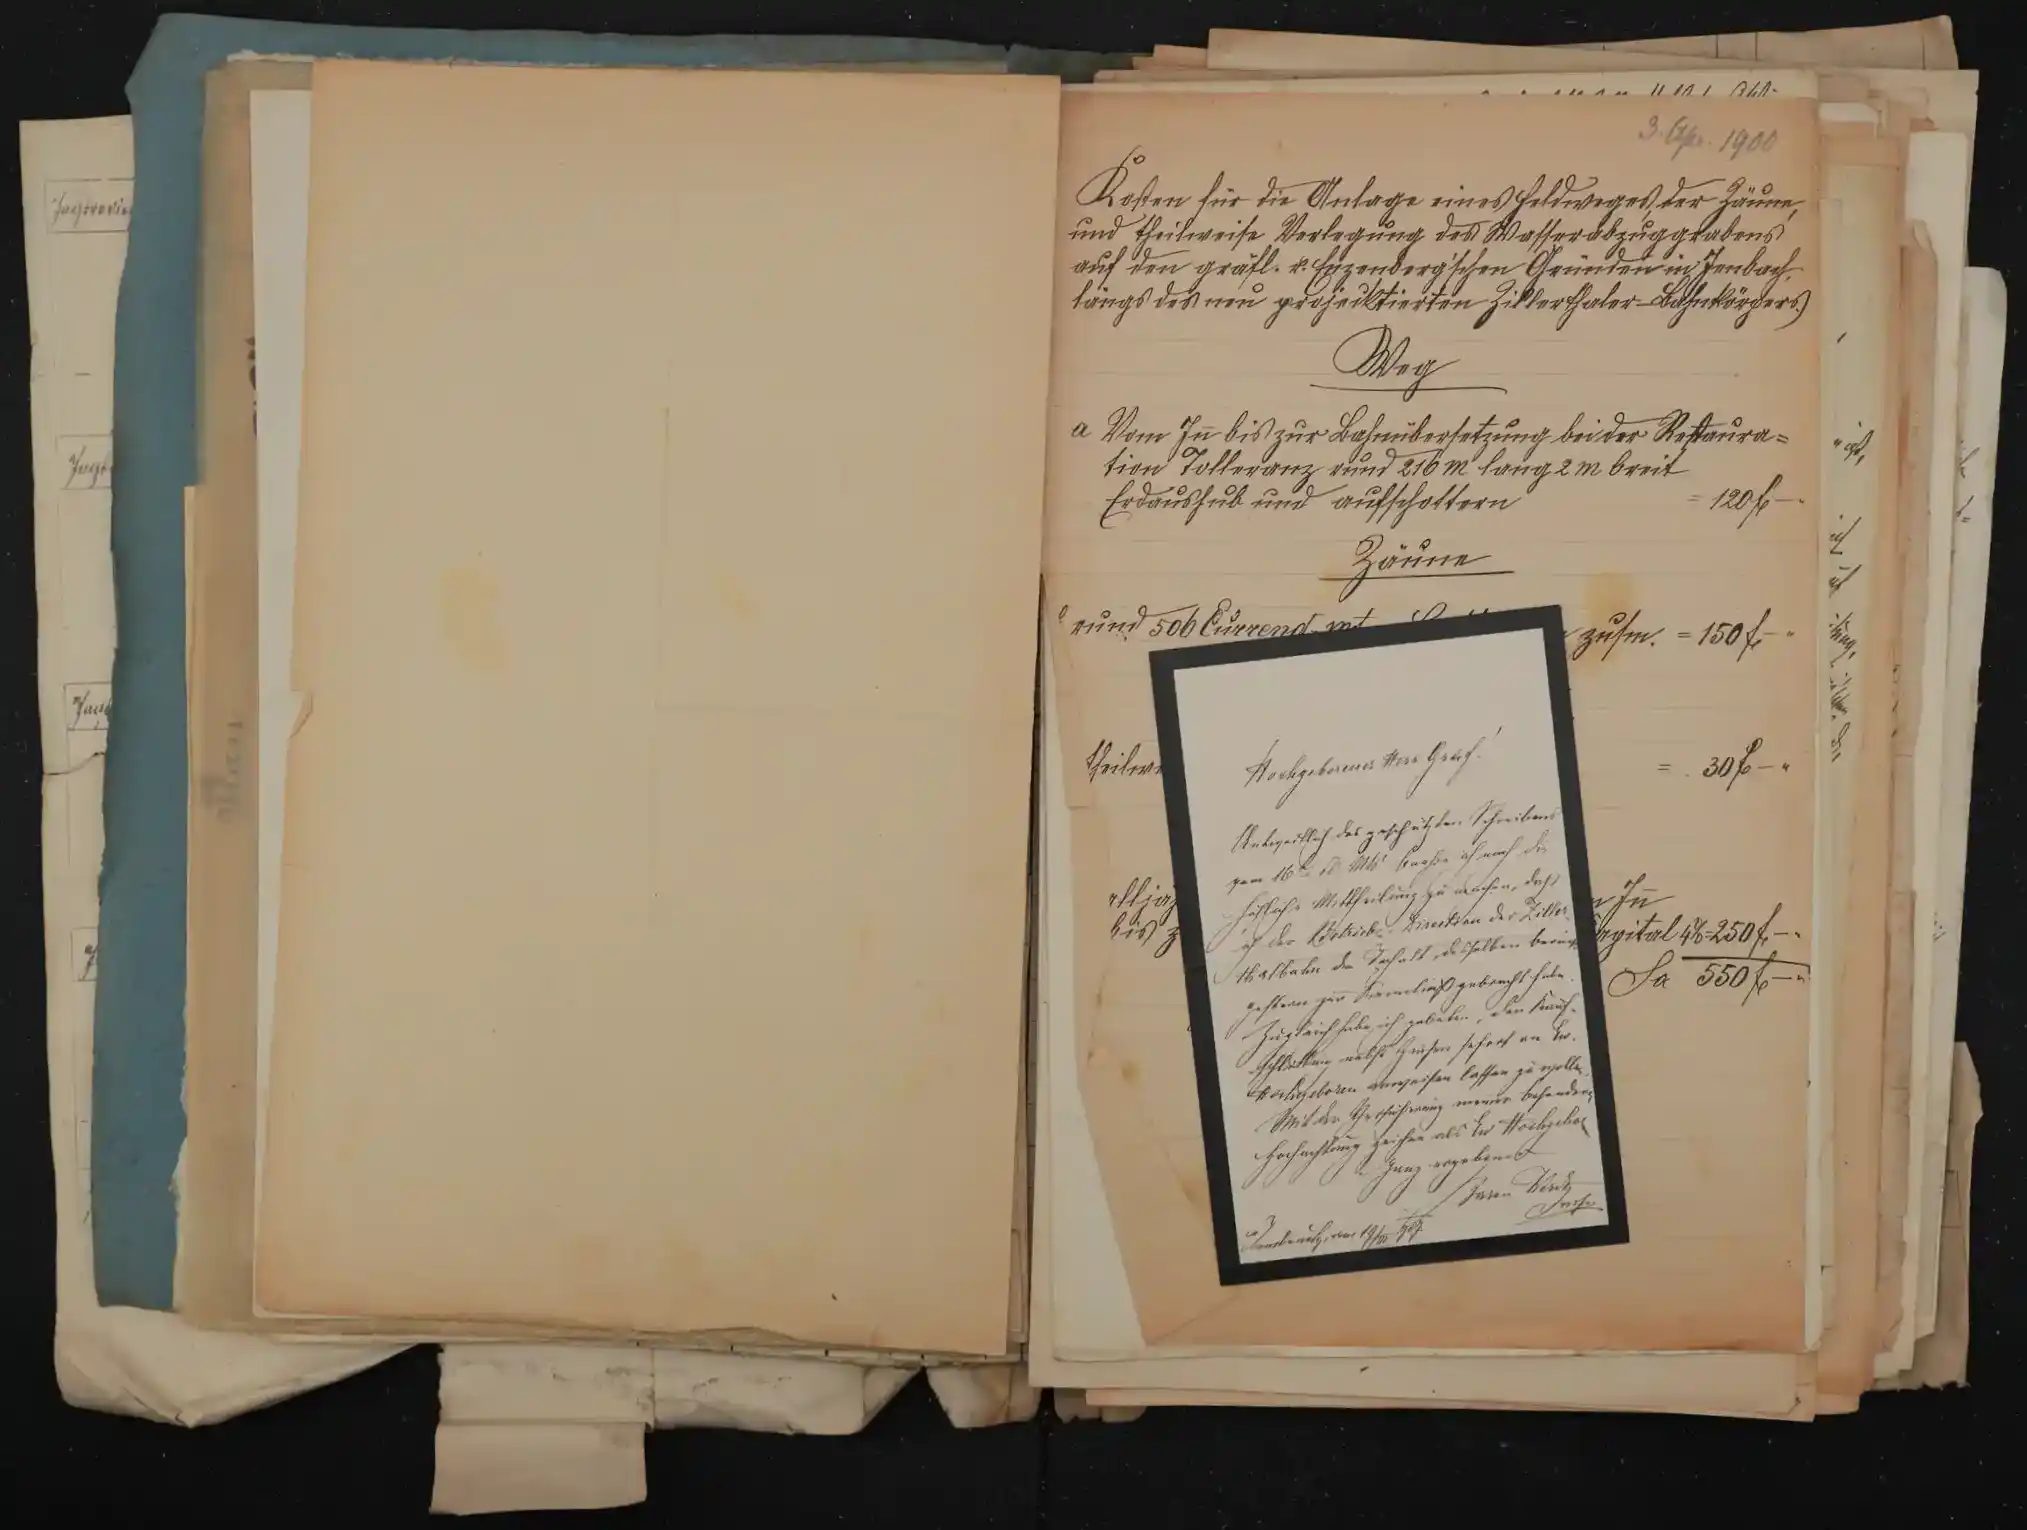 3. Apr. 1900
Kosten für die Anlage eines Feldweges, der Zäune,
und theilweise Verlegung des Wasserabzuggrabens
auf den gräfl. v. Enzenberg'schen Gründen in Jenbach,
längs des neu projecktierten Zillerthaler-Bahnkörpers.)
Weg
a Vom Inn bis zur Bahnübersetzung bei der Restaura=
tion Tolleranz rund 216 m lang 2 m breit
Erdaushub und aufschottern = 120 f —"
Zäune
rund 506 Current zusm. = 150 f —"
theilwe = 30 f —"
alljä n Inn
bis z Capital 4% = 250 f —"
Sa 550 f —"
Hochgeborener Herr Graf!
Antwortlich des geschätzten Schreibens
vom 16 beehre ich mich die
höfliche Mittheilung zu machen, daß
ich der Betriebs-Direction der Ziller-
thalbahn den Inhalt desselben bereits
gestern zur Kenntniß gebracht habe.
Zugleich habe ich gebeten, den Kauf-
schilling nebst Zinsen sofort an Ew.
Hochgeboren anweisen lassen zu wollen.
Mit der Versicherung meiner besonderen
Hochachtung zeichne als Ew Hochgebor
ganz ergebener
Innsbruck, am 19/